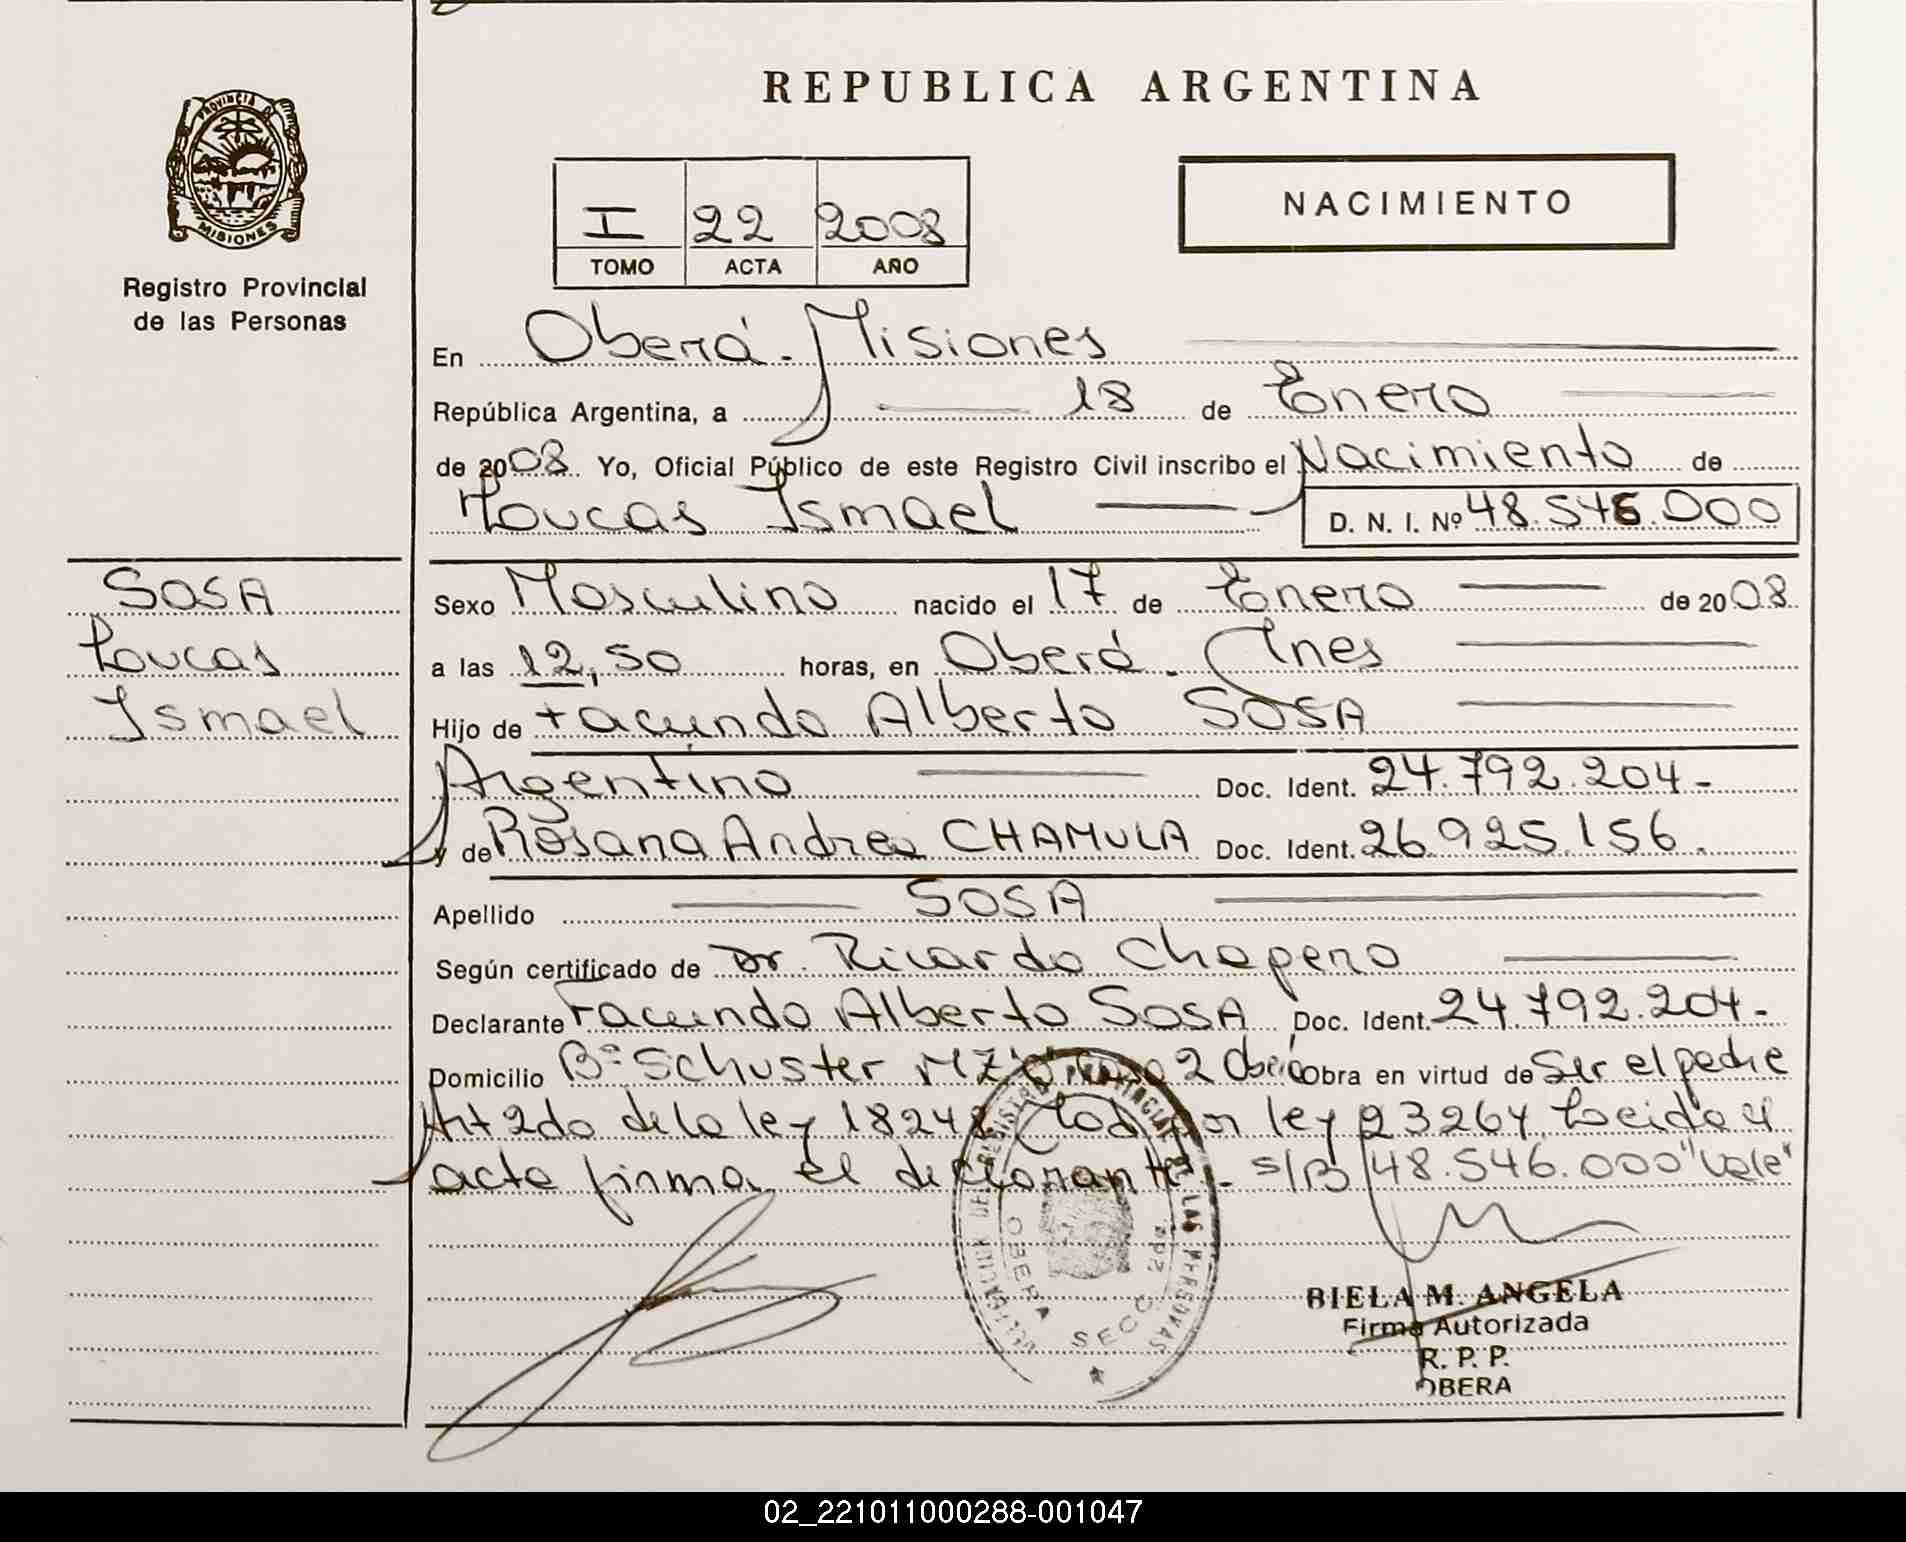 REPUBLICA ARGENTINA
PROVINCIA DE
MISIONES
Registro Provincial
de las Personas
NACIMIENTO
I 22 2008
TOMO ACTA AÑO
En Oberá - Misiones
República Argentina, a 18 de Enero
de 2008 Yo, Oficial Público de este Registro Civil inscribo el Nacimiento de
Loucas Ismael D. N. I. Nº 48.546.000
SOSA
Loucas
Ismael
Sexo Masculino nacido el 17 de Enero de 2008
a las 12,50 horas, en Oberá - Mnes
Hijo de Facundo Alberto SOSA
Argentino Doc. Ident. 24.792.204-
y de Rosana Andrea CHAMULA Doc. Ident. 26.925.156.
Apellido SOSA
Según certificado de Dr. Ricardo Chapero
Declarante Facundo Alberto SOSA Doc. Ident. 24.792.204-
Domicilio Bº Schuster MZ 2 Oberá Obra en virtud de Ser el padre
Art 2do de la ley 18248 Mod por ley 23264. Leida el
acta firma el declarante - S/B 48.546.000 "Vale"
DELEGACION DEL REGISTRO PROVINCIAL DE LAS PERSONAS
OBERA SECC. 2da.
BIELA M. ANGELA
Firma Autorizada
R. P. P.
OBERA
02_221011000288-001047